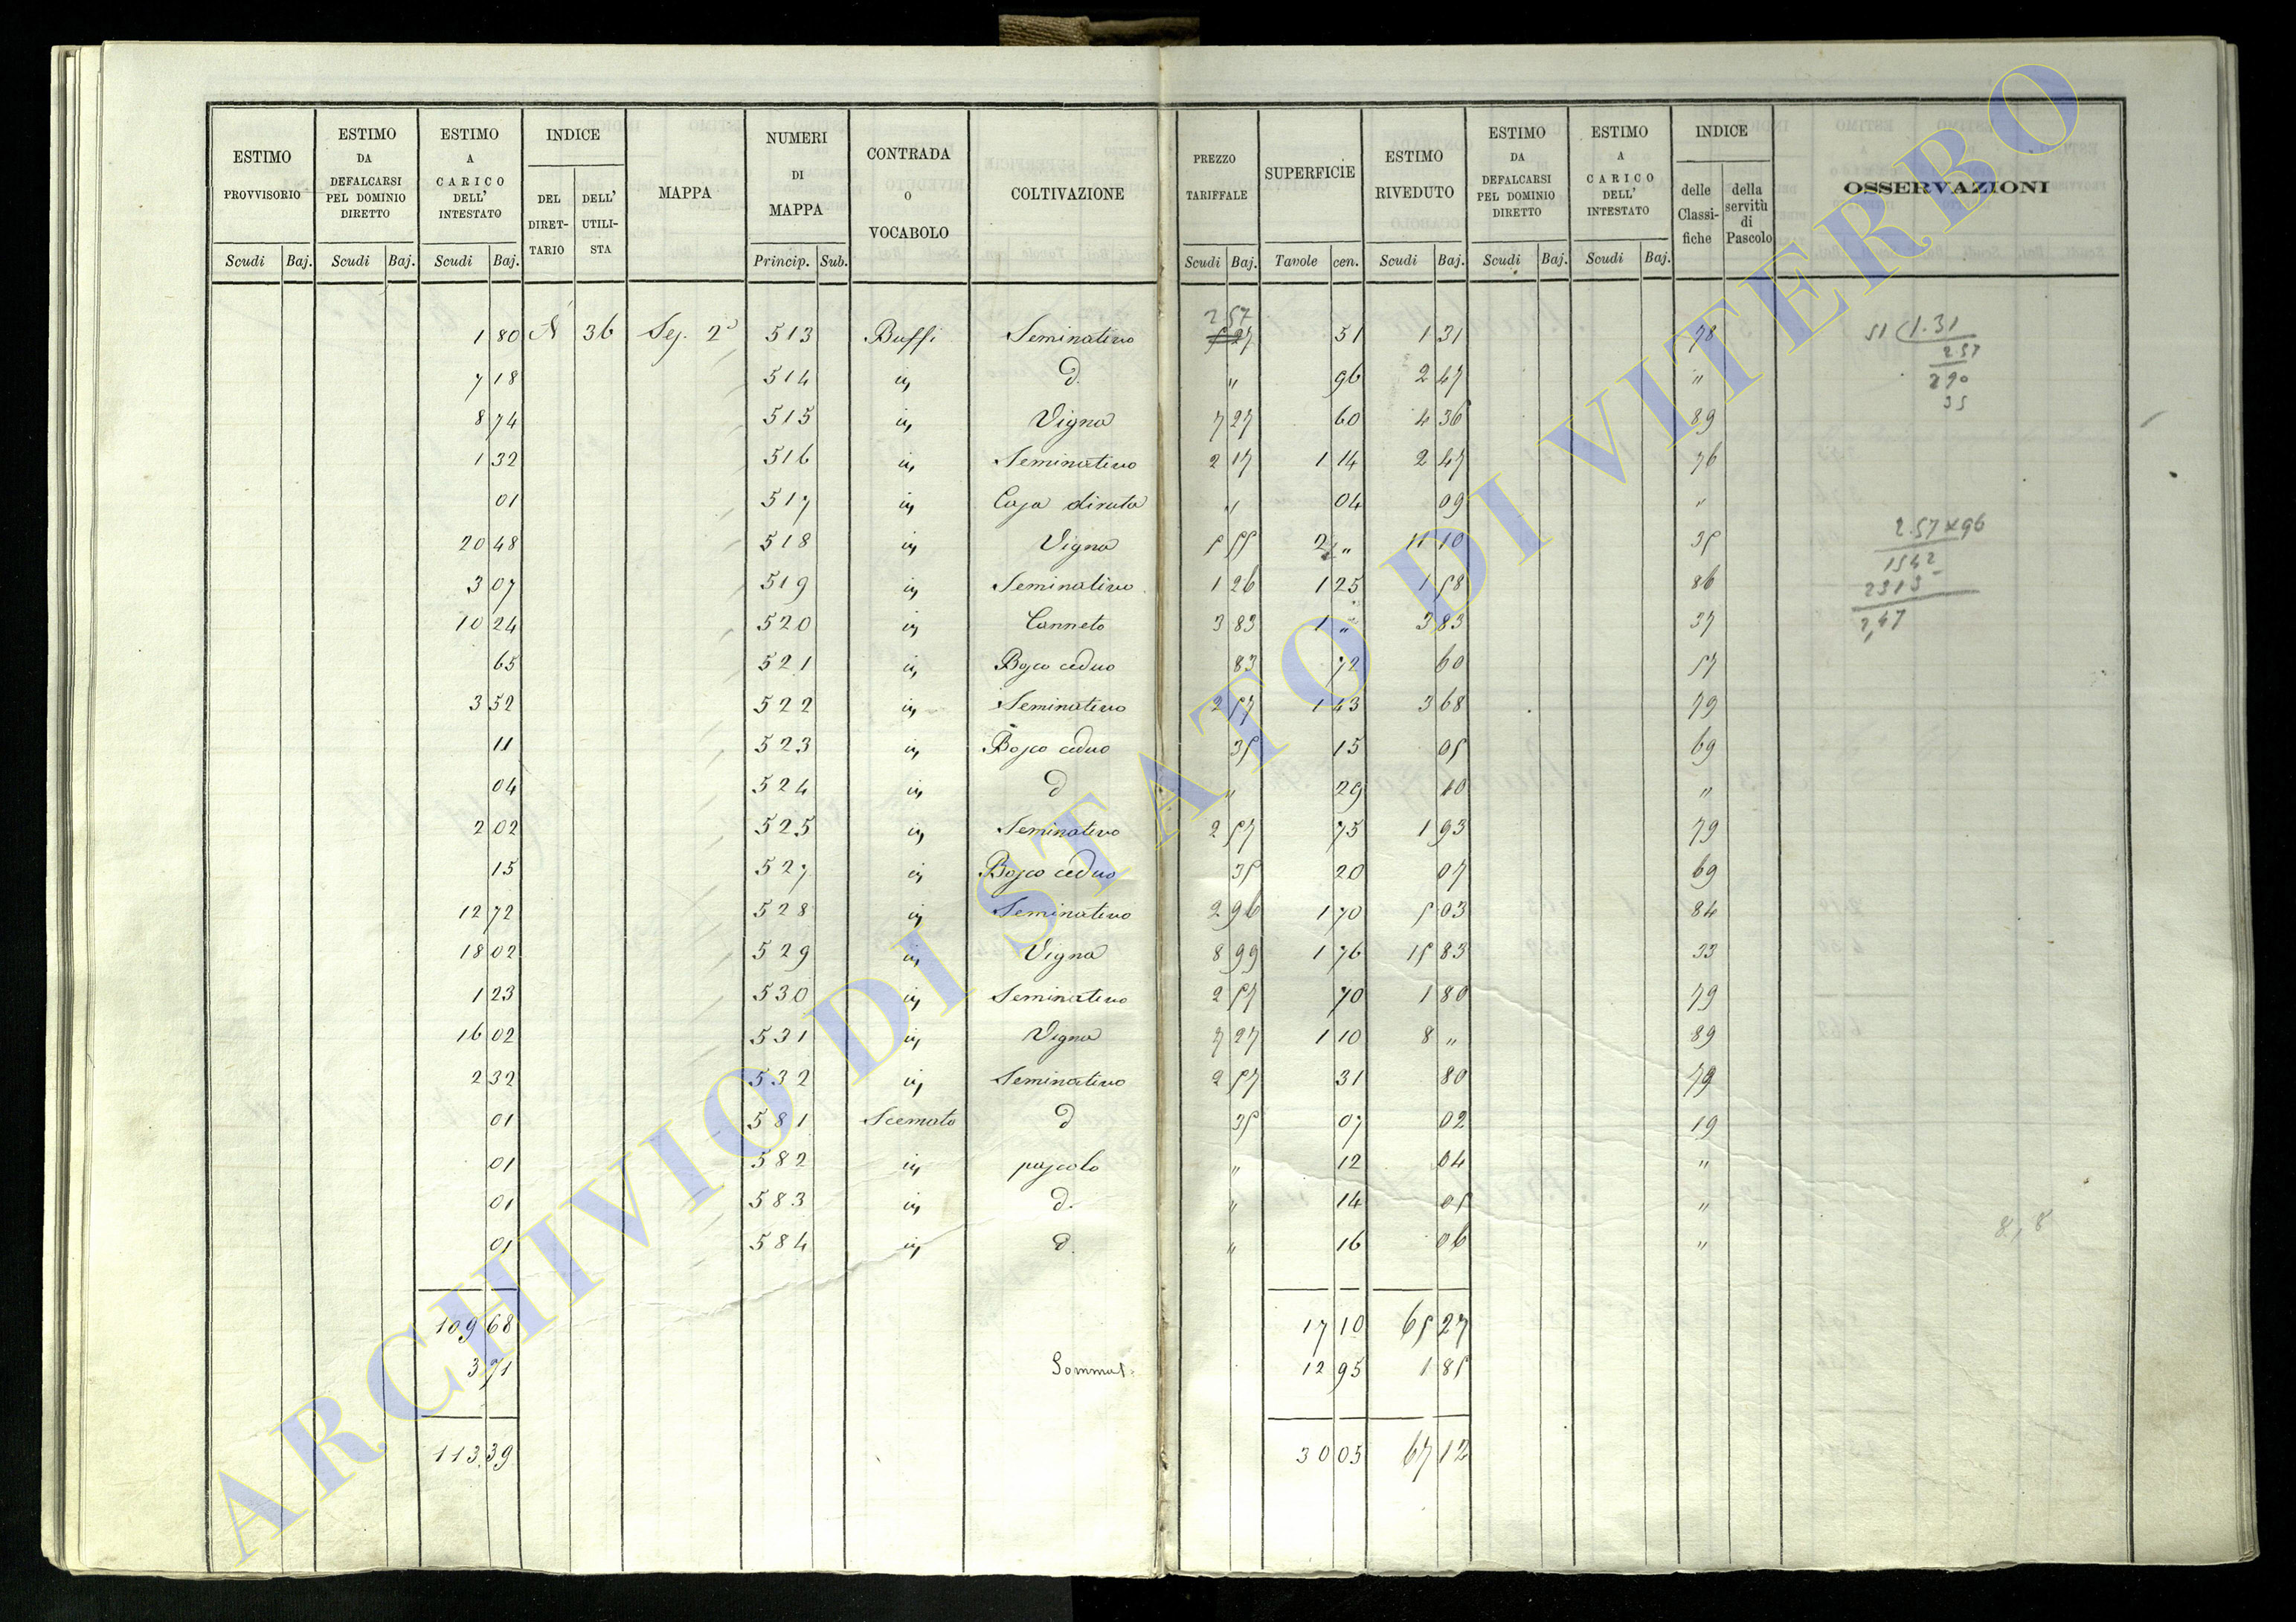 ESTIMO PROVVISORIO | ESTIMO DA DEFALCARSI PEL DOMINIO DIRETTO | ESTIMO A CARICO DELL' INTESTATO | INDICE DEL DIRETTARIO | DELL' UTILISTA | MAPPA | NUMERI DI MAPPA | CONTRADA O VOCABOLO | COLTIVAZIONE | PREZZO TARIFFALE | SUPERFICIE | ESTIMO RIVEDUTO | ESTIMO DA DEFALCARSI PEL DOMINIO DIRETTO | ESTIMO A CARICO DELL' INTESTATO | INDICE delle Classifiche | della servitù di Pascolo | OSSERVAZIONI
Scudi Baj. | Scudi Baj. | Scudi Baj. | Princip. Sub. | Scudi Baj. | Tavole cen. | Scudi Baj. | Scudi Baj. | Scudi Baj.
2 57
1 80 N 36 Sez. 2ª 513 Buffi Seminativo 51 1 31 78 51 (1.31
2 57
290
35
7 18 514 in D. " 96 2 47 "
8 74 515 in Vigna 7 27 60 4 36 89
1 32 516 in Seminativo 2 17 1 14 2 47 76
01 517 in Casa diruta " 04 09 "
20 48 518 in Vigna 5 55 2 " 11 10 35 2.57×96
1542
2313
2,47
3 07 519 in Seminativo 1 26 1 25 1 58 86
10 24 520 in Canneto 3 83 1 " 3 83 37
65 521 in Bosco ceduo 83 72 60 57
3 52 522 in Seminativo 2 57 1 43 3 68 79
11 523 in Bosco ceduo 35 15 05 69
04 524 in D " 29 10 "
2 02 525 in Seminativo 2 57 75 1 93 79
15 527 in Bosco ceduo 35 20 07 69
12 72 528 in Seminativo 2 96 1 70 5 03 84
18 02 529 in Vigna 8 99 1 76 15 83 33
1 23 530 in Seminativo 2 57 70 1 80 79
16 02 531 in Vigna 7 27 1 10 8 " 89
2 32 532 in Seminativo 2 57 31 80 79
01 581 Scemato D 35 07 02 19
01 582 in pascolo " 12 04 "
01 583 in D. " 14 05 "
01 584 in D. " 16 06 " 8,8
109 68 17 10 65 27
3 71 12 95 1 85
113.39 30 05 67 12
ARCHIVIO DI STATO DI VITERBO